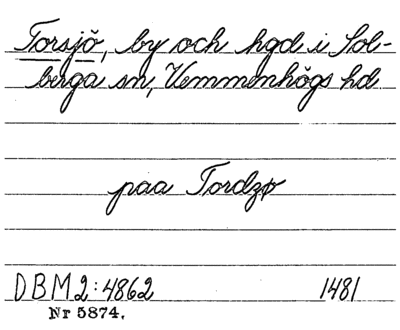 Torsjö, by och hgd i Sol-
berga sn, Vemmenhögs hd
paa Tordzø
DBM2:4862 1481
Nr 5874.